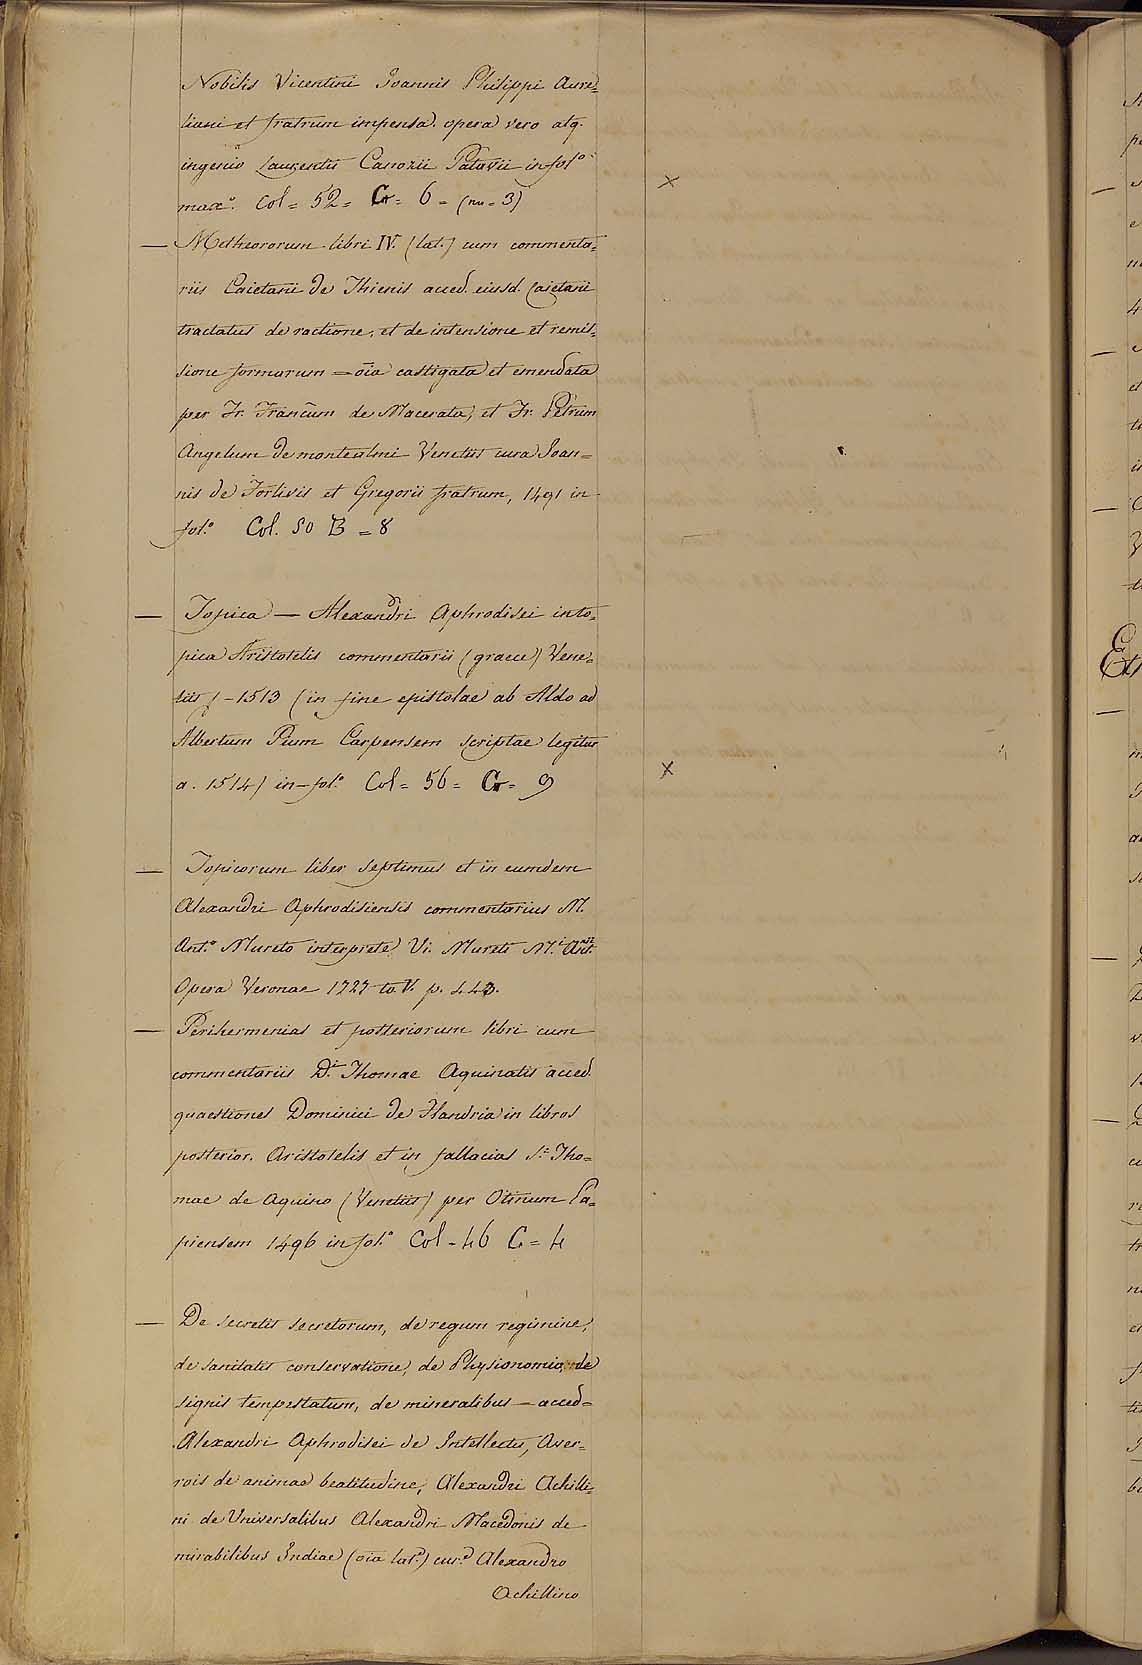 Nobilis Vicentini Joannis Philippi Aure=
liani et fratrum impensa. opera vero atq.
ingenio Laurentii Canozii Patavii in-fol.º
max.º Col = 52 = G = 6 = (nu = 3)
— Metheororum libri IV. (lat.) cum commenta=
riis Caietani de Thienis acced. eiusd. Caietani
tractatus de ractione, et de intensione et remis=
sione formarum = oia castigata et emendata
per Fr. Francum de Macerata, et Fr. Petrum
Angelum de montealmi Venetiis cura Joan=
nis de Forlivis et Gregorii fratrum, 1491 in
fol.º Col. 50 B = 8
— Topica — Alexandri Aphrodisei in to=
pica Aristotelis commentarii (graece) Vene=
tiis - 1513 (in fine epistolae ab Aldo ad
Albertum Pium Carpensem scriptae legitur
a. 1514) in-fol.º Col = 56 = G = 9
— Topicorum liber septimus et in eumdem
Alexandri Aphrodisiensis commentarius M.
Ant.º Mureto interprete Vi. Mureti M.i Ant.nii
Opera Veronae 1727 to. V. p. 443.
— Perihermenias et posteriorum libri cum
commentariis D.i Thomae Aquinatis acced.
quaestiones Dominici de Flandria in libros
posterior. Aristotelis et in fallacias S.i Tho=
mae de Aquino (Venetiis) per Otinum Pa=
piensem 1496 in fol.º Col - 46 C = 4
— De secretis secretorum, de regum regimine,
de sanitatis conservatione, de Physionomia, de
signis tempestatum, de mineralibus — acced=
Alexandri Aphrodisei de Intellectu, Aver=
rois de animae beatitudine, Alexandri Achilli=
ni de Universalibus Alexandri Macedonis de
mirabilibus Indiae (oia lat.e) cur.e Alexandro
Achillino